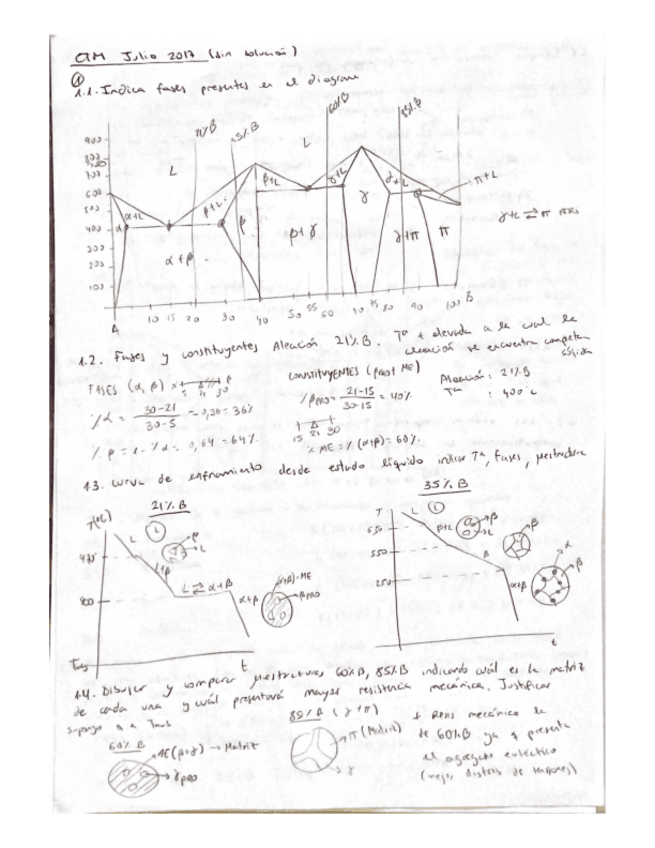 CTM Julio 2017 (sin solución)
①
1.1. Indica fases presentes en el diagrama
21%B
35%B
60%B
85%B
900
800
700
600
500
400
300
200
100
L
L
α
α+L
β+L
β
β+L
γ+L
γ
γ+L
π+L
α+β
β+γ
γ+π
π
γ+L ⇄ π
A
10 15 20 30 40 50 55 60 70 75 80 90 100
B
1.2. Fases y constituyentes Aleación 21%B. Tª + elevada a la cual la
aleación se encuentra completam
sólida
FASES (α, β)
α
β
5 21 30
CONSTITUYENTES (βPRO + ME)
Aleación: 21%B
Tª : 400ºC
%α = 30-21 / 30-5 = 0,36 = 36%
%βPRO = 21-15 / 30-15 = 40%
15 21 30
%β = 1-%α = 0,64 = 64%
%ME = %(α+β) = 60%
1.3. Curva de enfriamiento desde estado líquido indicar Tª, fases, μestructura
21%B
T(ºC)
L
L
β
L
L+β
470
L ⇄ α+β
400
α+β
(α+β)=ME
βPRO
t
35%B
T
L
L
650
β+L
β
L
β
550
β
α
β
250
α+β
t
1.4. Dibujar y comparar μestructuras 60%B, 85%B indicando cuál es la matriz
de cada una y cuál presentará mayor resistencia mecánica. Justificar
60%B
AE(β+γ) → Matriz
γPRO
85%B (γ+π)
π (Matriz)
γ
+ Rens mecánica la
de 60%B ya q presenta
el agregado eutéctico
(mejor distrib de tensiones)